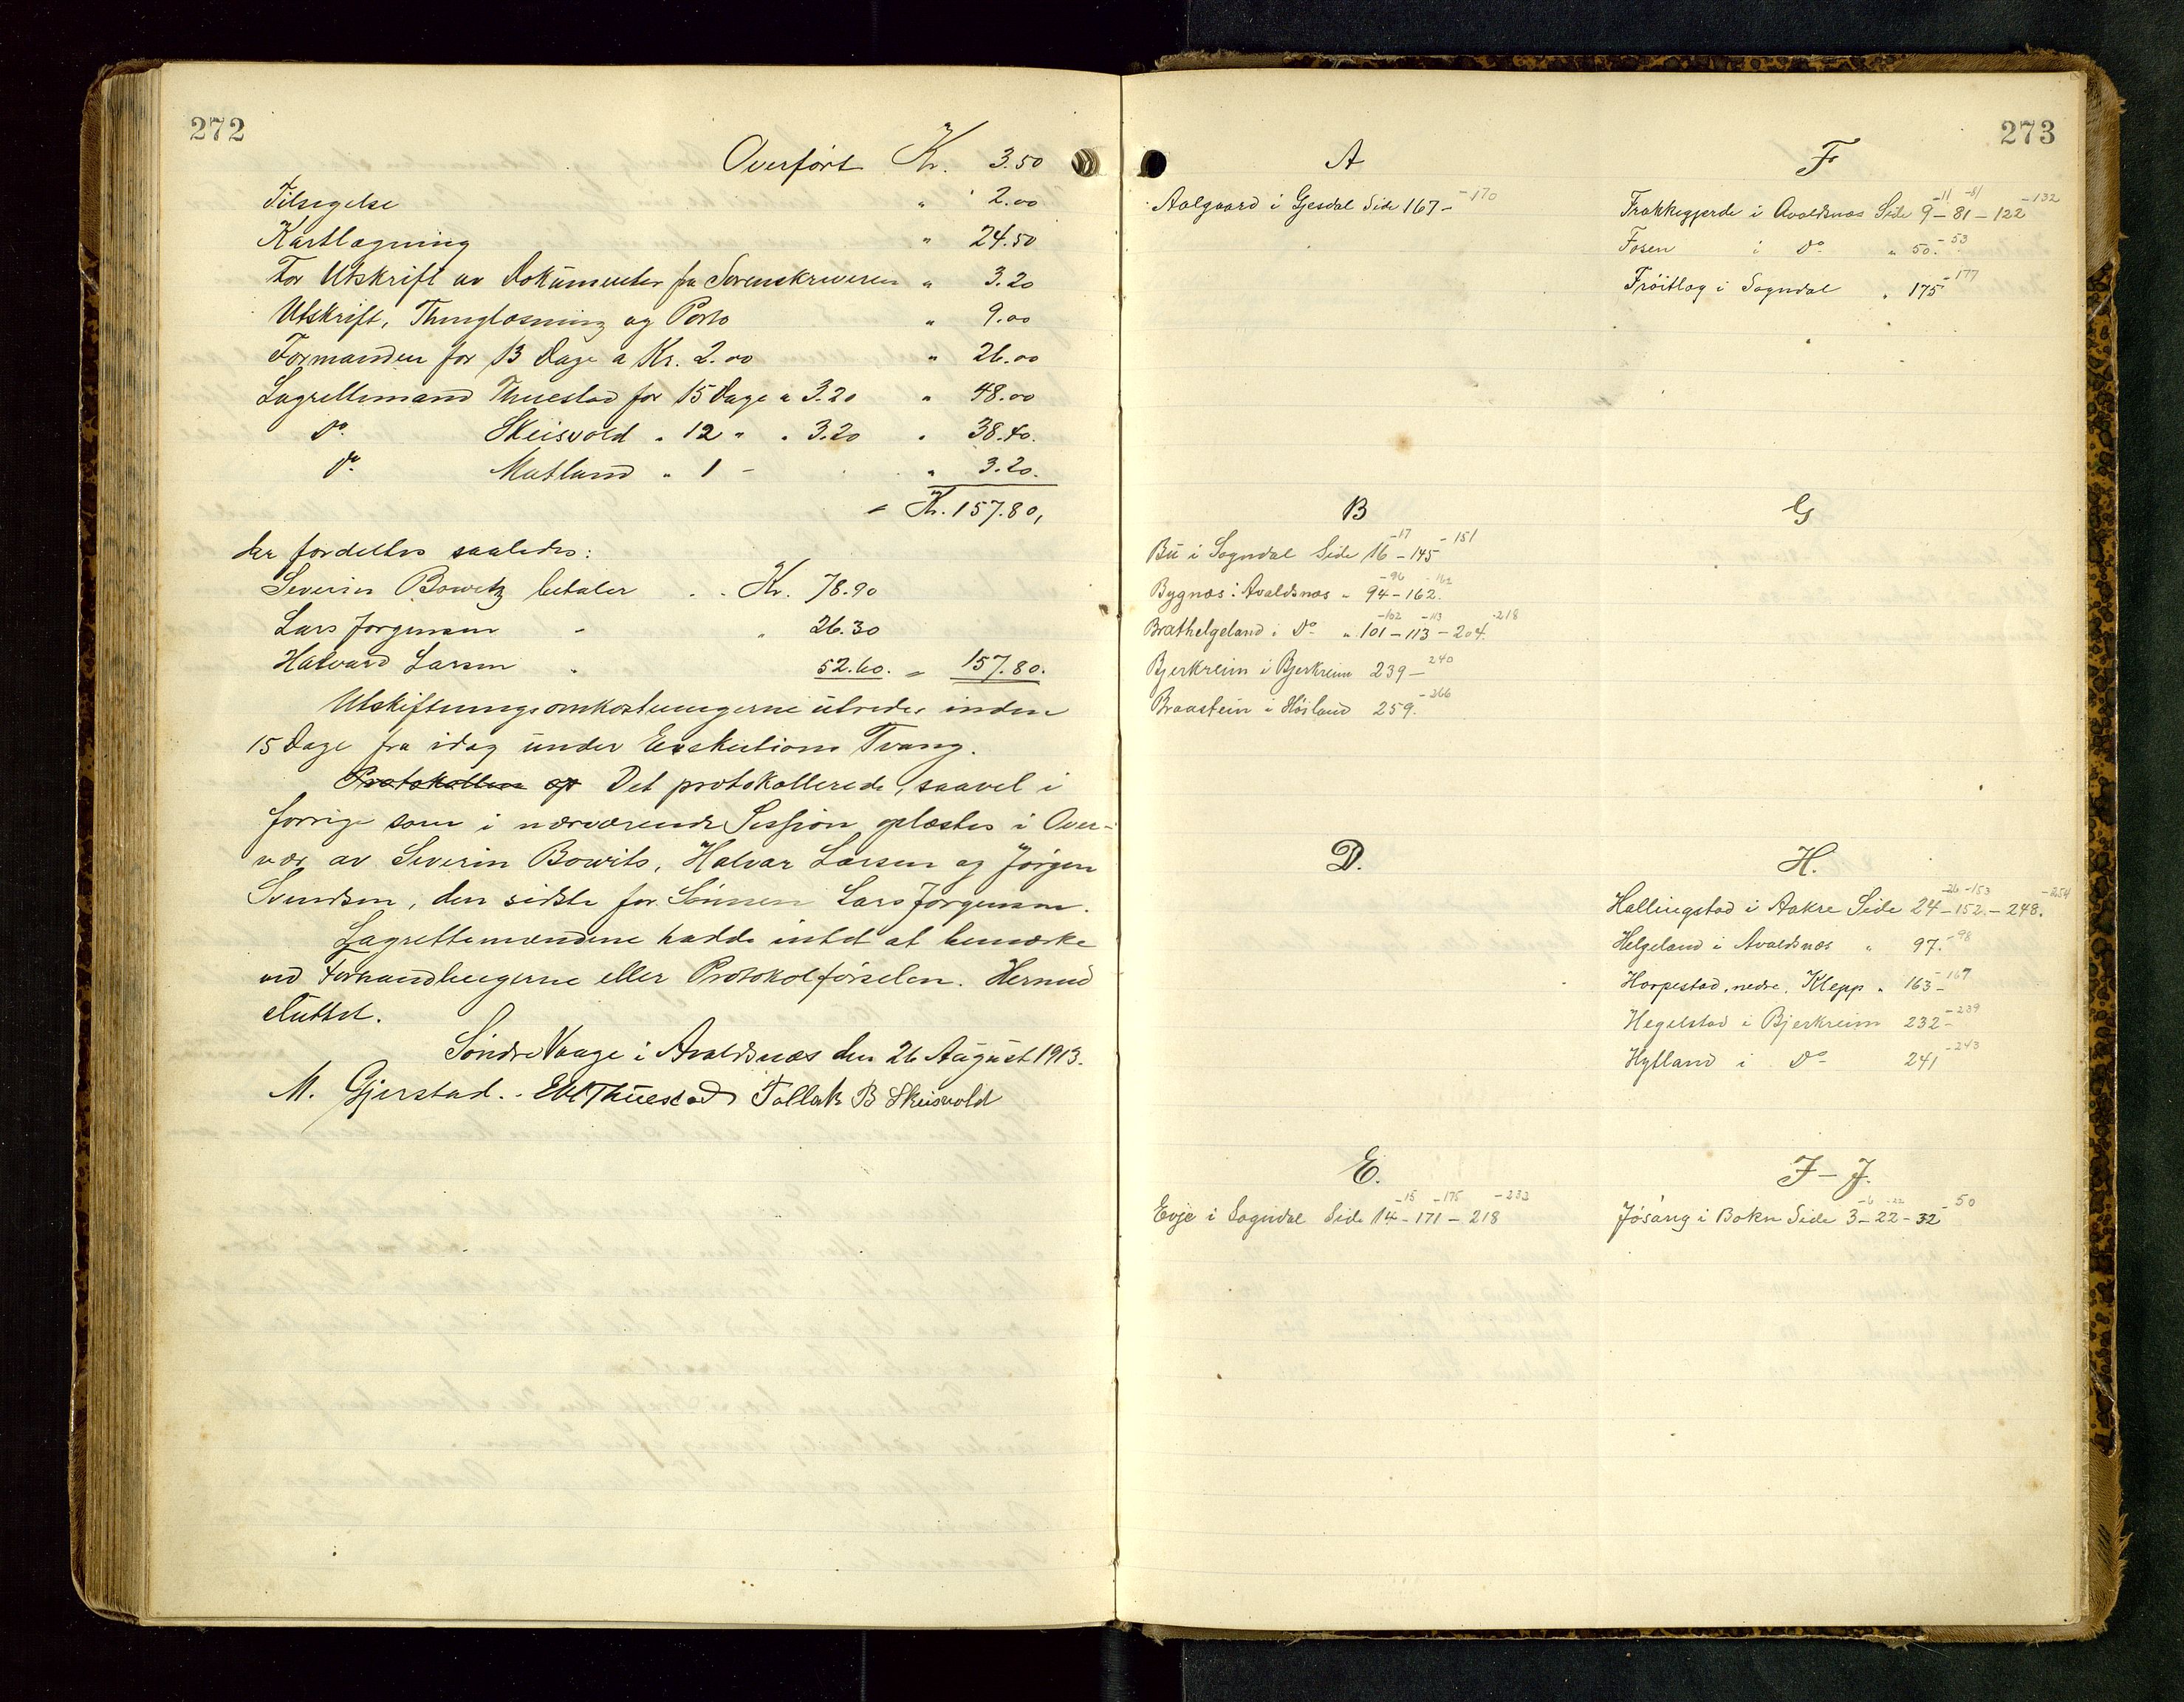 272
Overført Kr. 3.50
Tilsigelse " 2.00
Kartlægning " 24.50
For Utskrift av Dokumenter fra Sorenskriveren " 3.20
Utskrift, Thinglæsning og Porto " 9.00
Formanden for 13 Dage a Kr. 2.00 " 26.00
Lagrettemand Thuestad for 15 Dage a 3.20 " 48.00
Do. Skeisvold " 12 " " 3.20 " 38.40.
Do. Matland " 1 - " 3.20.
= Kr. 157.80,
der fordeltes saaledes:
Severin Bowitz betaler . . Kr. 78.90
Lars Jørgensen - " 26.30
Halvard Larsen " 52.60. = 157.80.
Utskiftningsomkostningerne utredes inden
15 Dage fra idag under Exekutions Tvang.
Protokollen op Det protokollerede, saavel i
forrige som i nærværende Session oplæstes i Over-
vær av Severin Bowits, Halvar Larsen og Jørgen
Svendsen, den sidste for Sønnen Lars Jørgensen.
Lagrettemændene hadde intet at bemærke
ved Forhandlingerne eller Protokolførselen. Hermed
sluttet.
Søndre Vaage i Avaldsnæs den 26 August 1913.
M. Gjerstad. - Thuestad Tallak B Skeisvold
273
A
Aalgaard i Gjesdal Side 167 - -170
B
Bü i Sogndal Side 16 -17 - 145 -151
Bygnæs i Avaldsnæs " 94 -96 - 162. -162
Brathelgeland i Do " 101 -102 - 113 -113 - 204. -218
Bjerkreim i Bjerkreim 239 - 240
Braastein i Høiland 259. -266
D.
E.
Evje i Sogndal Side 14 -15 - 171 -175 - 218 -232
F
Frakkegjerde i Avaldsnæs Side 9 -11 - 81 -81 - 122 -132
Fosen i Do " 50. -53
Frøitlog i Sogndal " 175 -177
G
H.
Hallingstad i Aakre Side 24 -26 - 152 -153 - 248. -254
Helgeland i Avaldsnæs " 97. -98
Horpestad, nedre, Klepp " 163 - 167
Hegelstad i Bjerkreim 232 - -239
Hytland i Do 241 -243
I - J.
Jøsang i Bokn Side 3 -6 - 22 -22 - 32 - 50